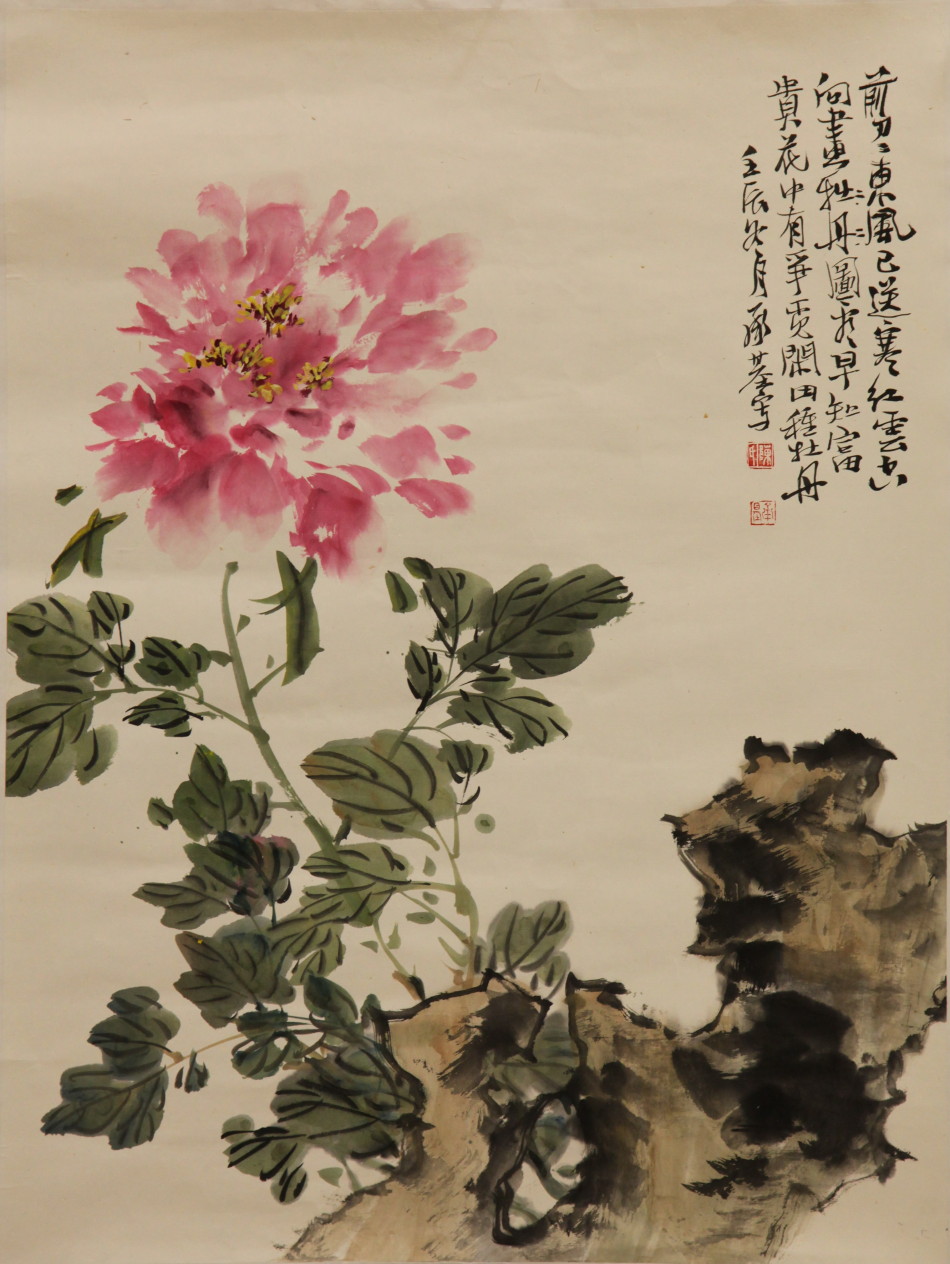 翦〻東風已送寒紅雲
向畫牡丹圖看早知富
貴花中有爭覓閑田種牡丹
壬辰冬月承基寫